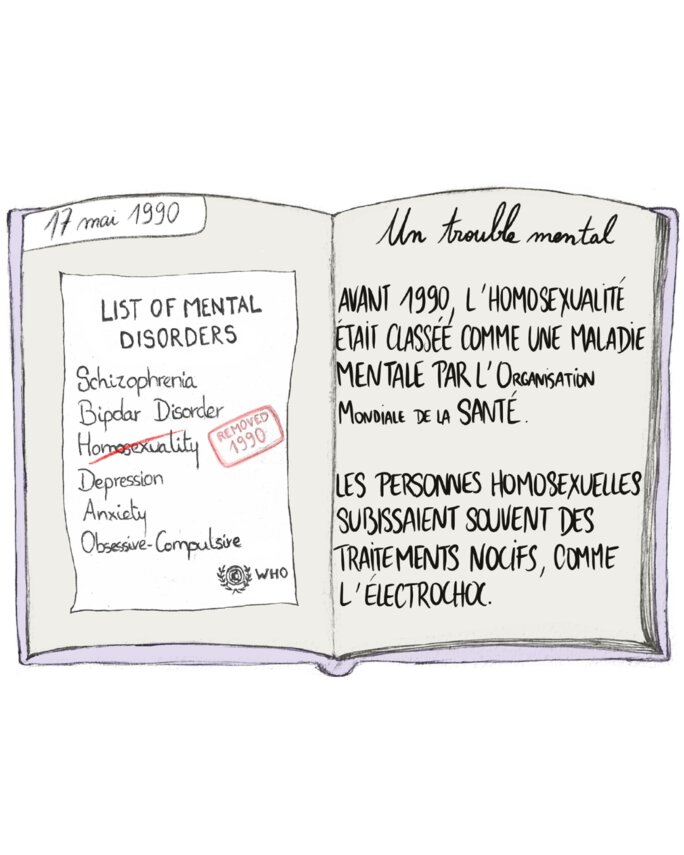 17 mai 1990
LIST OF MENTAL
DISORDERS
Schizophrenia
Bipolar Disorder
Homosexuality
REMOVED
1990
Depression
Anxiety
Obsessive-Compulsive
WHO
Un trouble mental
AVANT 1990, L'HOMOSEXUALITÉ
ÉTAIT CLASSÉE COMME UNE MALADIE
MENTALE PAR L'ORGANISATION
MONDIALE DE LA SANTÉ.
LES PERSONNES HOMOSEXUELLES
SUBISSAIENT SOUVENT DES
TRAITEMENTS NOCIFS, COMME
L'ÉLECTROCHOC.